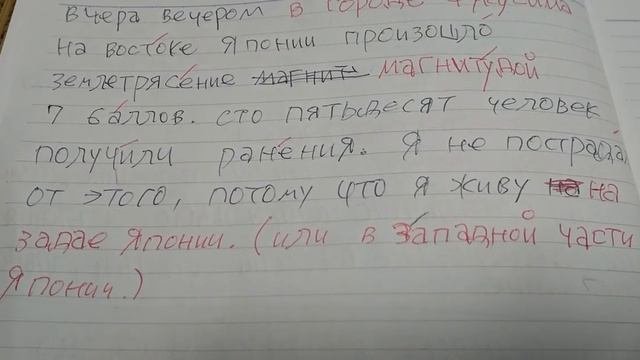 вчера вечером в городе
на востоке Японии произошло
землетрясение магнитудой
7 баллов. сто пятьдесят человек
получили ранения. Я не пострада
от этого, потому что я живу на
задае Японии. (или в западной части
Японии.)